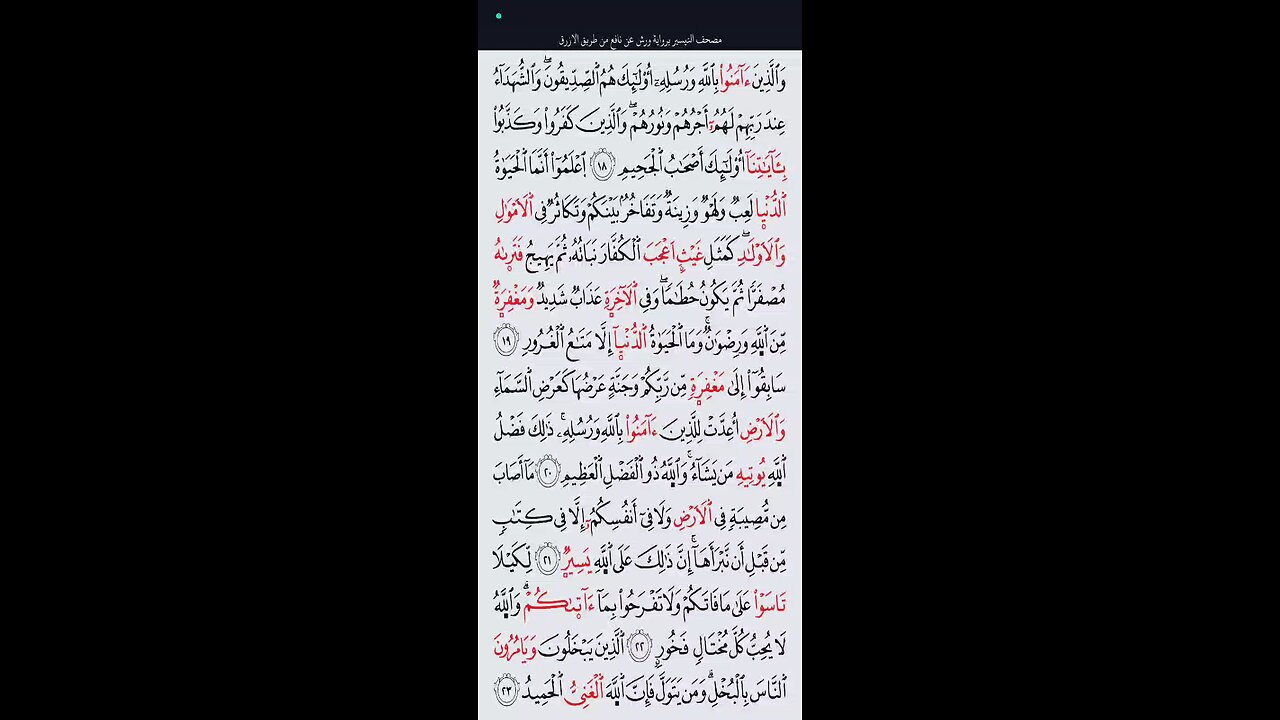 مصحف التيسير برواية ورش عن نافع من طريق الازرق
وَالَّذِينَ ءَامَنُوا۟ بِاللَّهِ وَرُسُلِهِۦٓ أُوْلَٰٓئِكَ هُمُ الصِّدِّيقُونَۖ وَالشُّهَدَآءُ
عِندَ رَبِّهِمْ لَهُمُۥٓ أَجْرُهُمْ وَنُورُهُمْۖ وَالَّذِينَ كَفَرُوا۟ وَكَذَّبُوا۟
بِـَٔايَٰتِنَآ أُوْلَٰٓئِكَ أَصْحَٰبُ الْجَحِيمِ ١٨ اِعْلَمُوٓا۟ أَنَّمَا الْحَيَوٰةُ
الدُّنْيا لَعِبٌ وَلَهْوٌ وَزِينَةٌ وَتَفَاخُرٌ بَيْنَكُمْ وَتَكَاثُرٌ فِى الَامْوَٰلِ
وَالَاوْلَٰدِۖ كَمَثَلِ غَيْثٍ اَعْجَبَ الْكُفَّارَ نَبَاتُهُۥ ثُمَّ يَهِيجُ فَتَرىٰهُ
مُصْفَرًّا ثُمَّ يَكُونُ حُطَٰمًاۖ وَفِى الَاخِرَةِ عَذَابٌ شَدِيدٌ وَمَغْفِرَةٌ
مِّنَ اللَّهِ وَرِضْوَٰنٌۚ وَمَا الْحَيَوٰةُ الدُّنْيآ إِلَّا مَتَٰعُ الْغُرُورِ ١٩
سَابِقُوٓا۟ إِلَىٰ مَغْفِرَةٍ مِّن رَّبِّكُمْ وَجَنَّةٍ عَرْضُهَا كَعَرْضِ السَّمَآءِ
وَالَارْضِ أُعِدَّتْ لِلَّذِينَ ءَامَنُوا۟ بِاللَّهِ وَرُسُلِهِۦۚ ذَٰلِكَ فَضْلُ
اللَّهِ يُوتِيهِ مَن يَشَآءُۚ وَاللَّهُ ذُو الْفَضْلِ الْعَظِيمِ ٢٠ مَآ أَصَابَ
مِن مُّصِيبَةٍ فِى الَارْضِ وَلَا فِىٓ أَنفُسِكُمُۥٓ إِلَّا فِى كِتَٰبٍ
مِّن قَبْلِ أَن نَّبْرَأَهَآۚ إِنَّ ذَٰلِكَ عَلَى اللَّهِ يَسِيرٌ ٢١ لِّكَيْلَا
تَاسَوْا۟ عَلَىٰ مَا فَاتَكُمْ وَلَا تَفْرَحُوا۟ بِمَآ ءَاتىٰكُمْۗ وَاللَّهُ
لَا يُحِبُّ كُلَّ مُخْتَالٍ فَخُورٍ ٢٢ الَّذِينَ يَبْخَلُونَ وَيَامُرُونَ
النَّاسَ بِالْبُخْلِۗ وَمَن يَتَوَلَّ فَإِنَّ اللَّهَ الْغَنِىُّ الْحَمِيدُ ٢٣